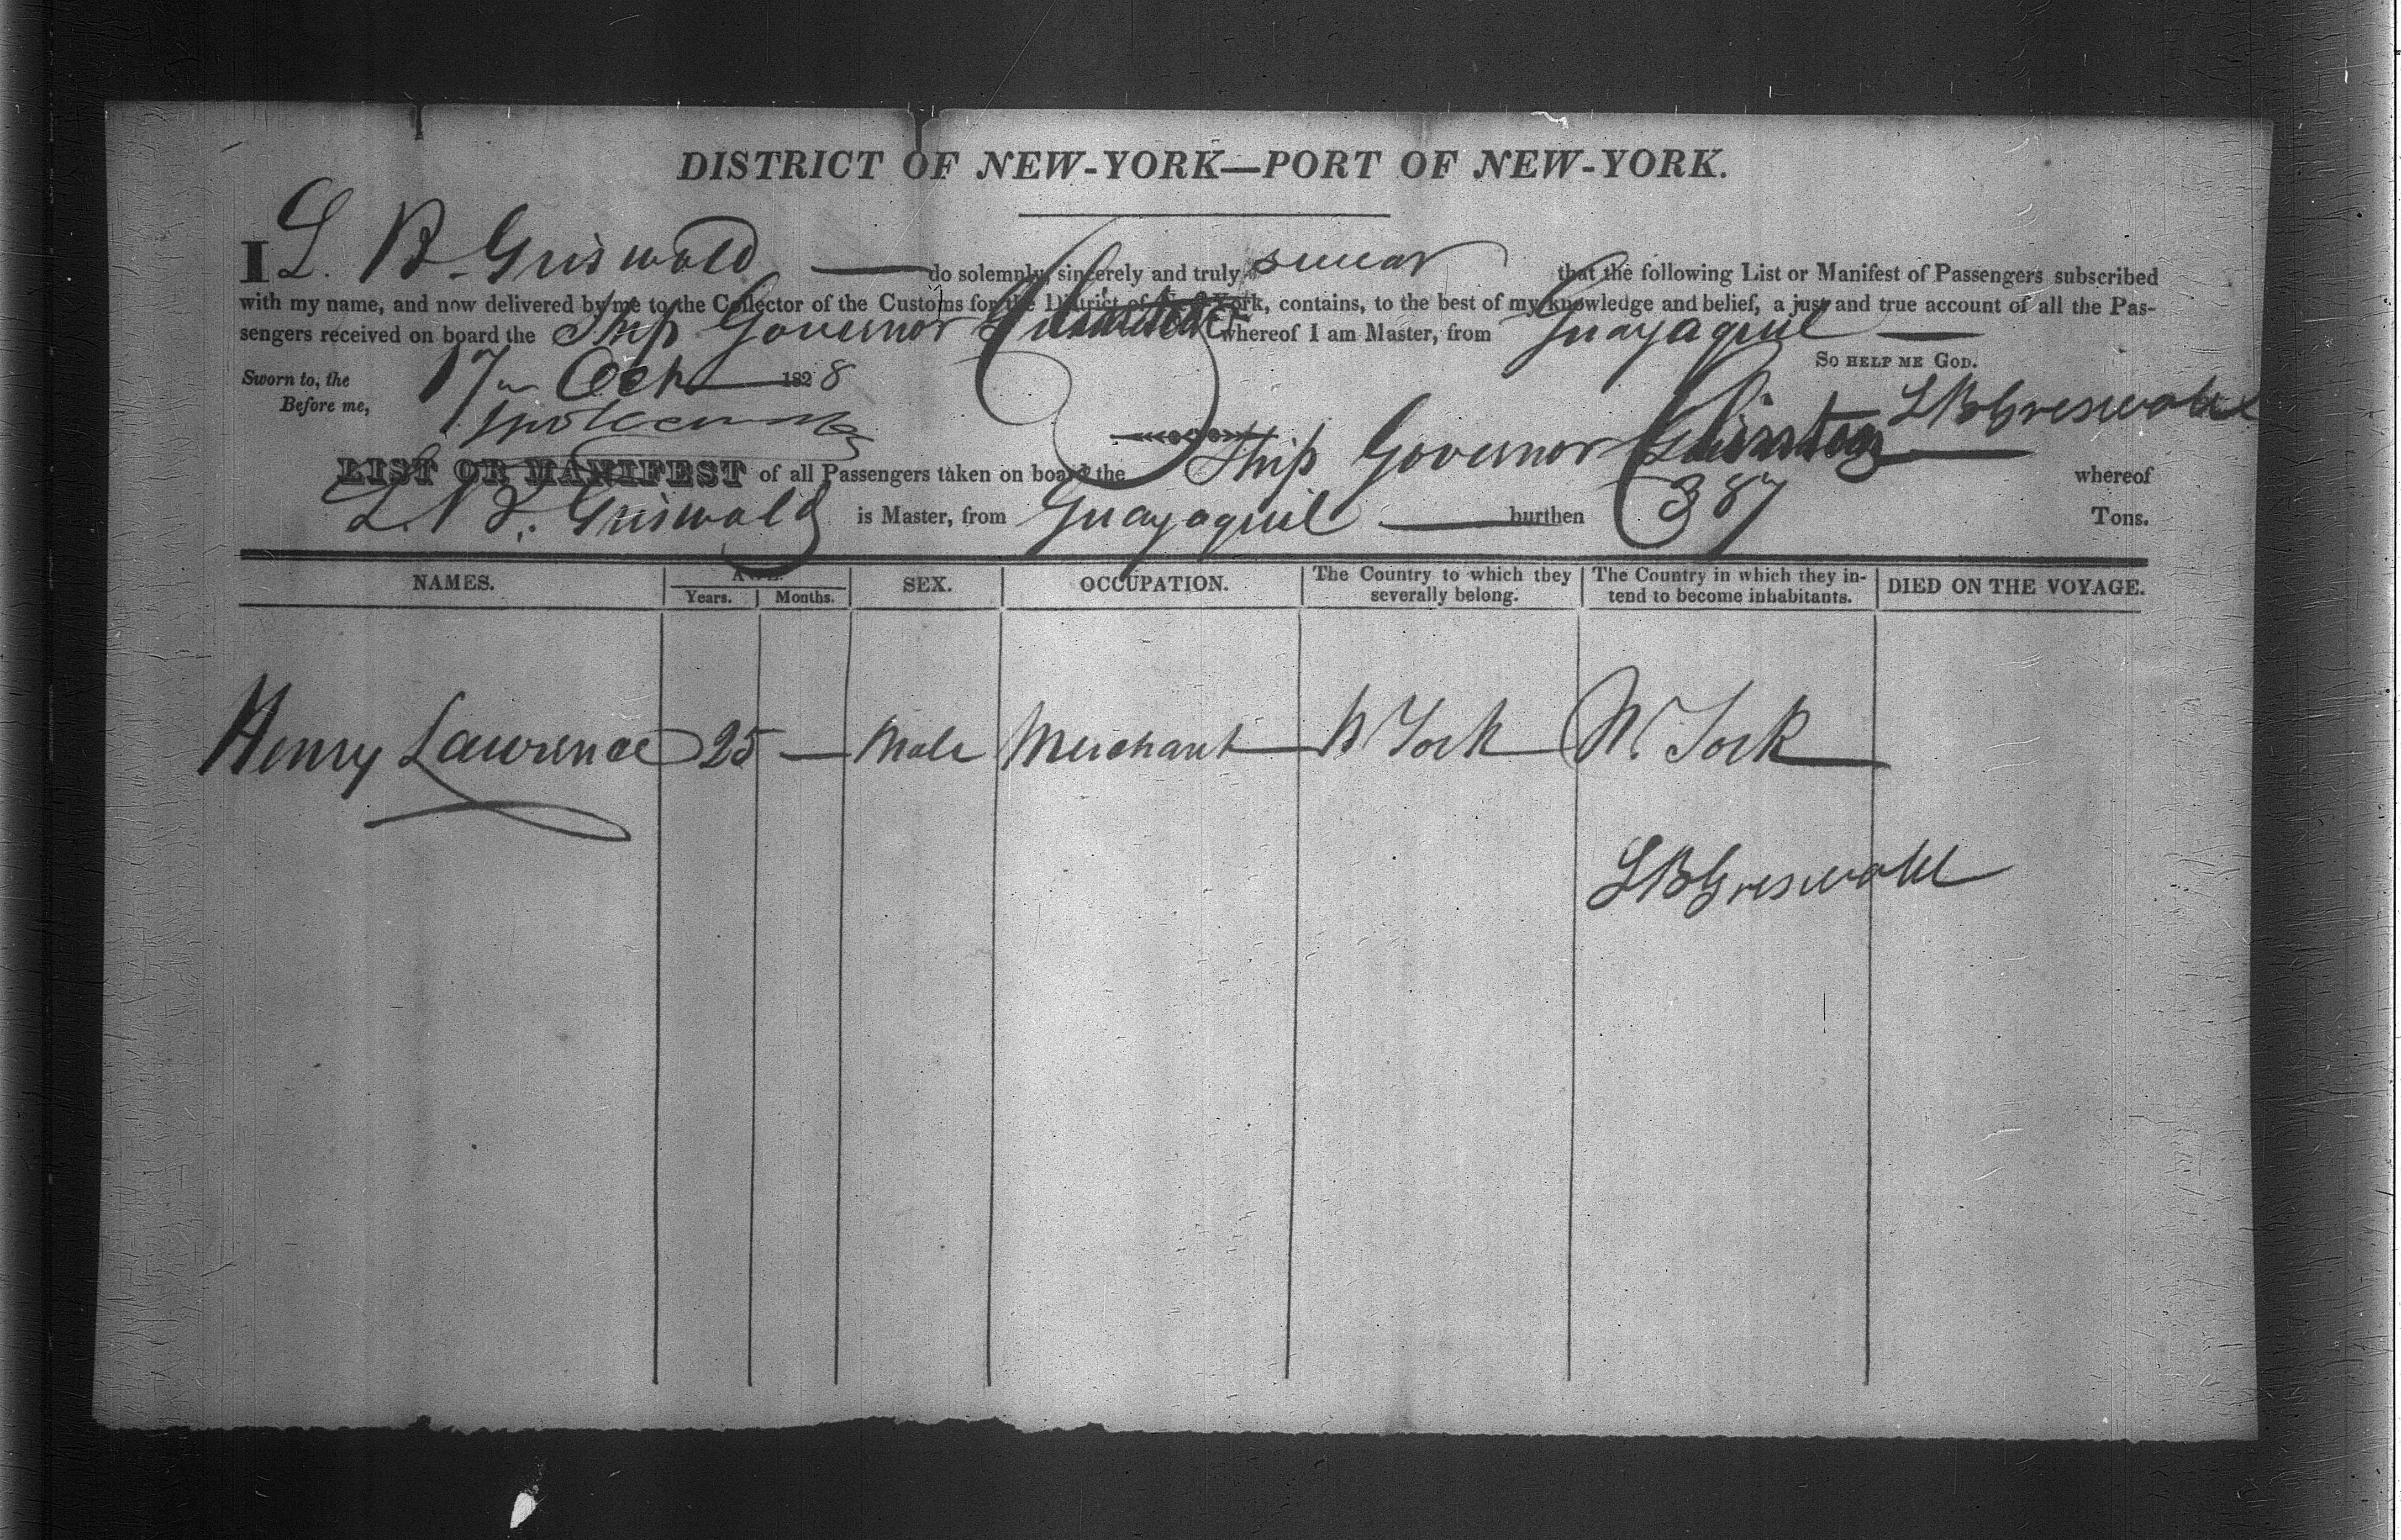 DISTRICT OF NEW-YORK—PORT OF NEW-YORK.
I L. B. Griswold — do solemnly, sincerely and truly swear that the following List or Manifest of Passengers subscribed
with my name, and now delivered by me to the Collector of the Customs for the District of New-York, contains, to the best of my knowledge and belief, a just and true account of all the Pas-
sengers received on board the Ship Governor Clinton whereof I am Master, from Guayaquil —
So help me God.
Sworn to, the 17 Oct 1828
Before me,
L B Griswold
LIST OR MANIFEST of all Passengers taken on board the Ship Governor Clinton — whereof
L. B. Griswold is Master, from Guayaquil — burthen 387 Tons.
NAMES. AGE. SEX. OCCUPATION. The Country to which they severally belong. The Country in which they in-tend to become inhabitants. DIED ON THE VOYAGE.
Years. Months.
Henry Lawrence 25 — Male Merchant — N York — N. York —
L B Griswold